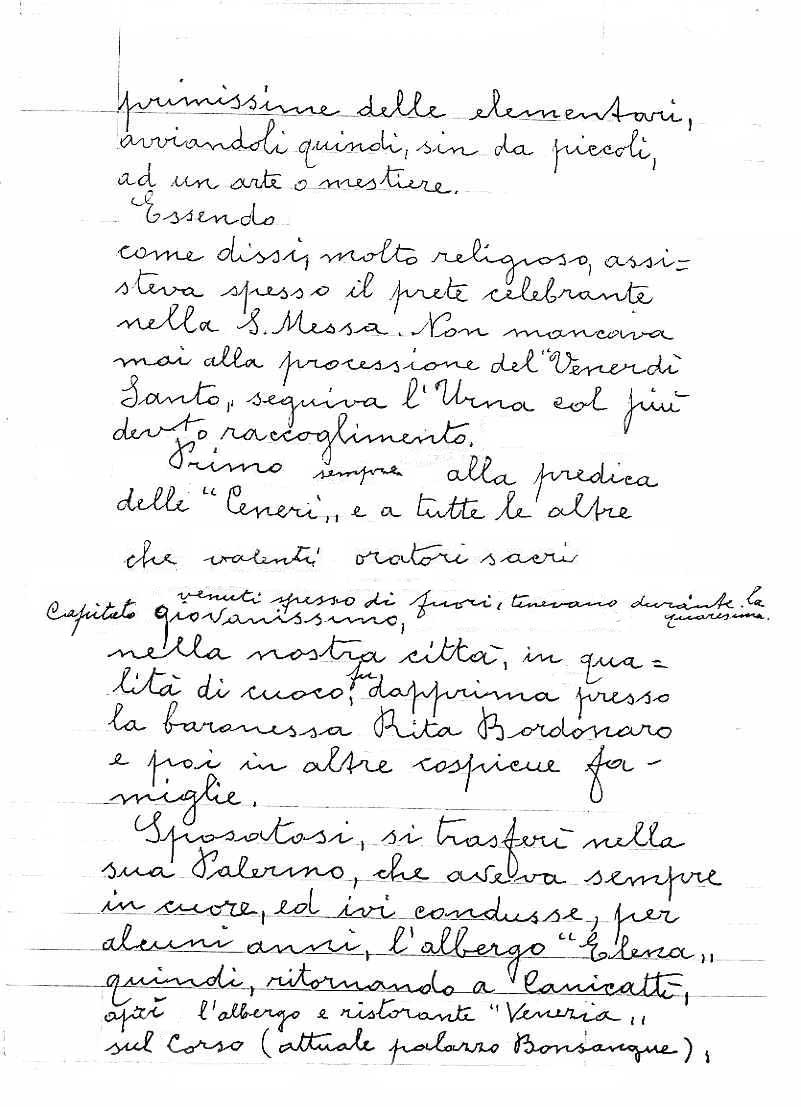 primissime delle elementari,
avviandoli quindi, sin da piccoli,
ad un arte o mestiere.
Essendo
come dissi, molto religioso, assi=
steva spesso il prete celebrante
nella S. Messa. Non mancava
mai alla processione del "Venerdì
Santo,, seguiva l'Urna col più
devoto raccoglimento.
Primo sempre alla predica
delle "Ceneri,, e a tutte le altre
che valenti oratori sacri
venuti spesso di fuori, tenevano durante la
quaresima.
Capitato giovanissimo,
nella nostra città, in qua=
lità di cuoco, fu dapprima presso
la baronessa Rita Bordonaro
e poi in altre cospicue fa-
miglie.
Sposatosi, si trasferì nella
sua Palermo, che aveva sempre
in cuore, ed ivi condusse, per
alcuni anni, l'albergo "Elena,,
quindi, ritornando a Canicattì,
aprì l'albergo e ristorante "Venezia,,
sul Corso (attuale palazzo Bonsangue),